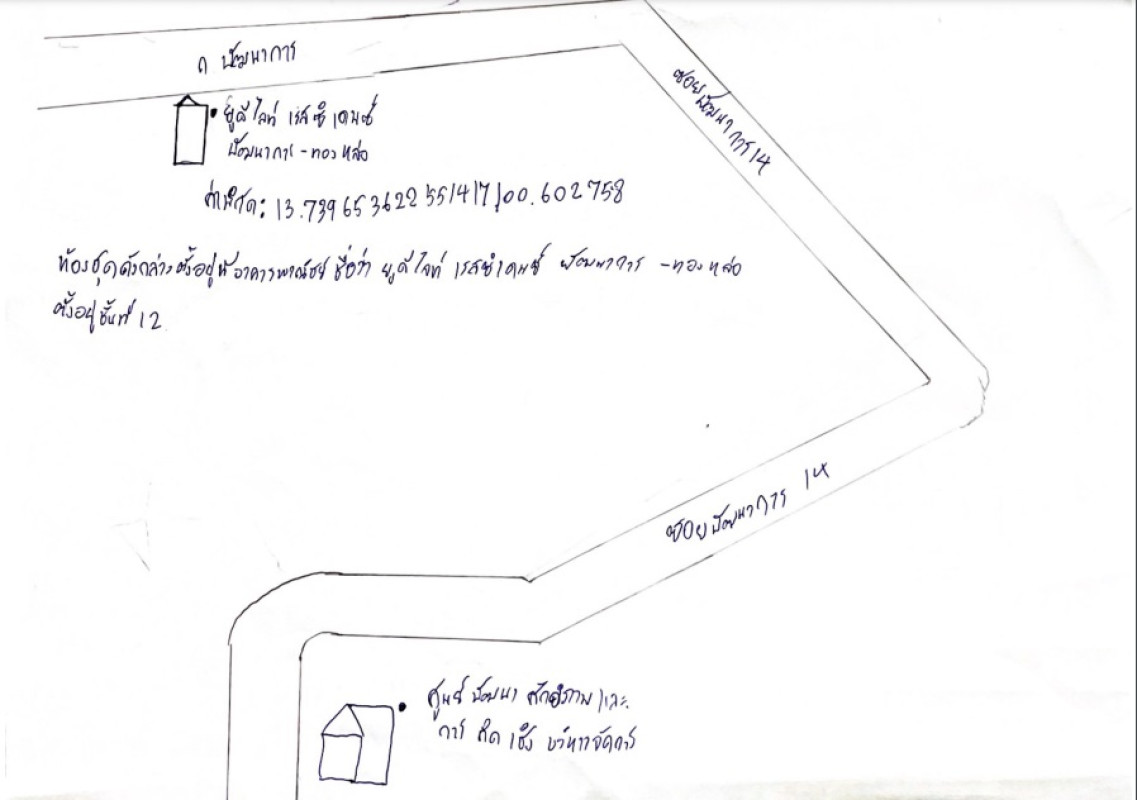 ถ พัฒนาการ
ซอยพัฒนาการ 14
ยูดีไลท์ เรสซิเดนซ์
พัฒนาการ - ทองหล่อ
ค่าพิกัด: 13.739653622551417,100.602758
ห้องชุดดังกล่าวตั้งอยู่ที่อาคารพาณิชย์ ชื่อว่า ยูดีไลท์ เรสซิเดนซ์ พัฒนาการ - ทองหล่อ
ตั้งอยู่ชั้นที่ 12
ซอยพัฒนาการ 14
ศูนย์พัฒนา ศักยภาพและ
การ คิด เชิง บริหารจัดการ